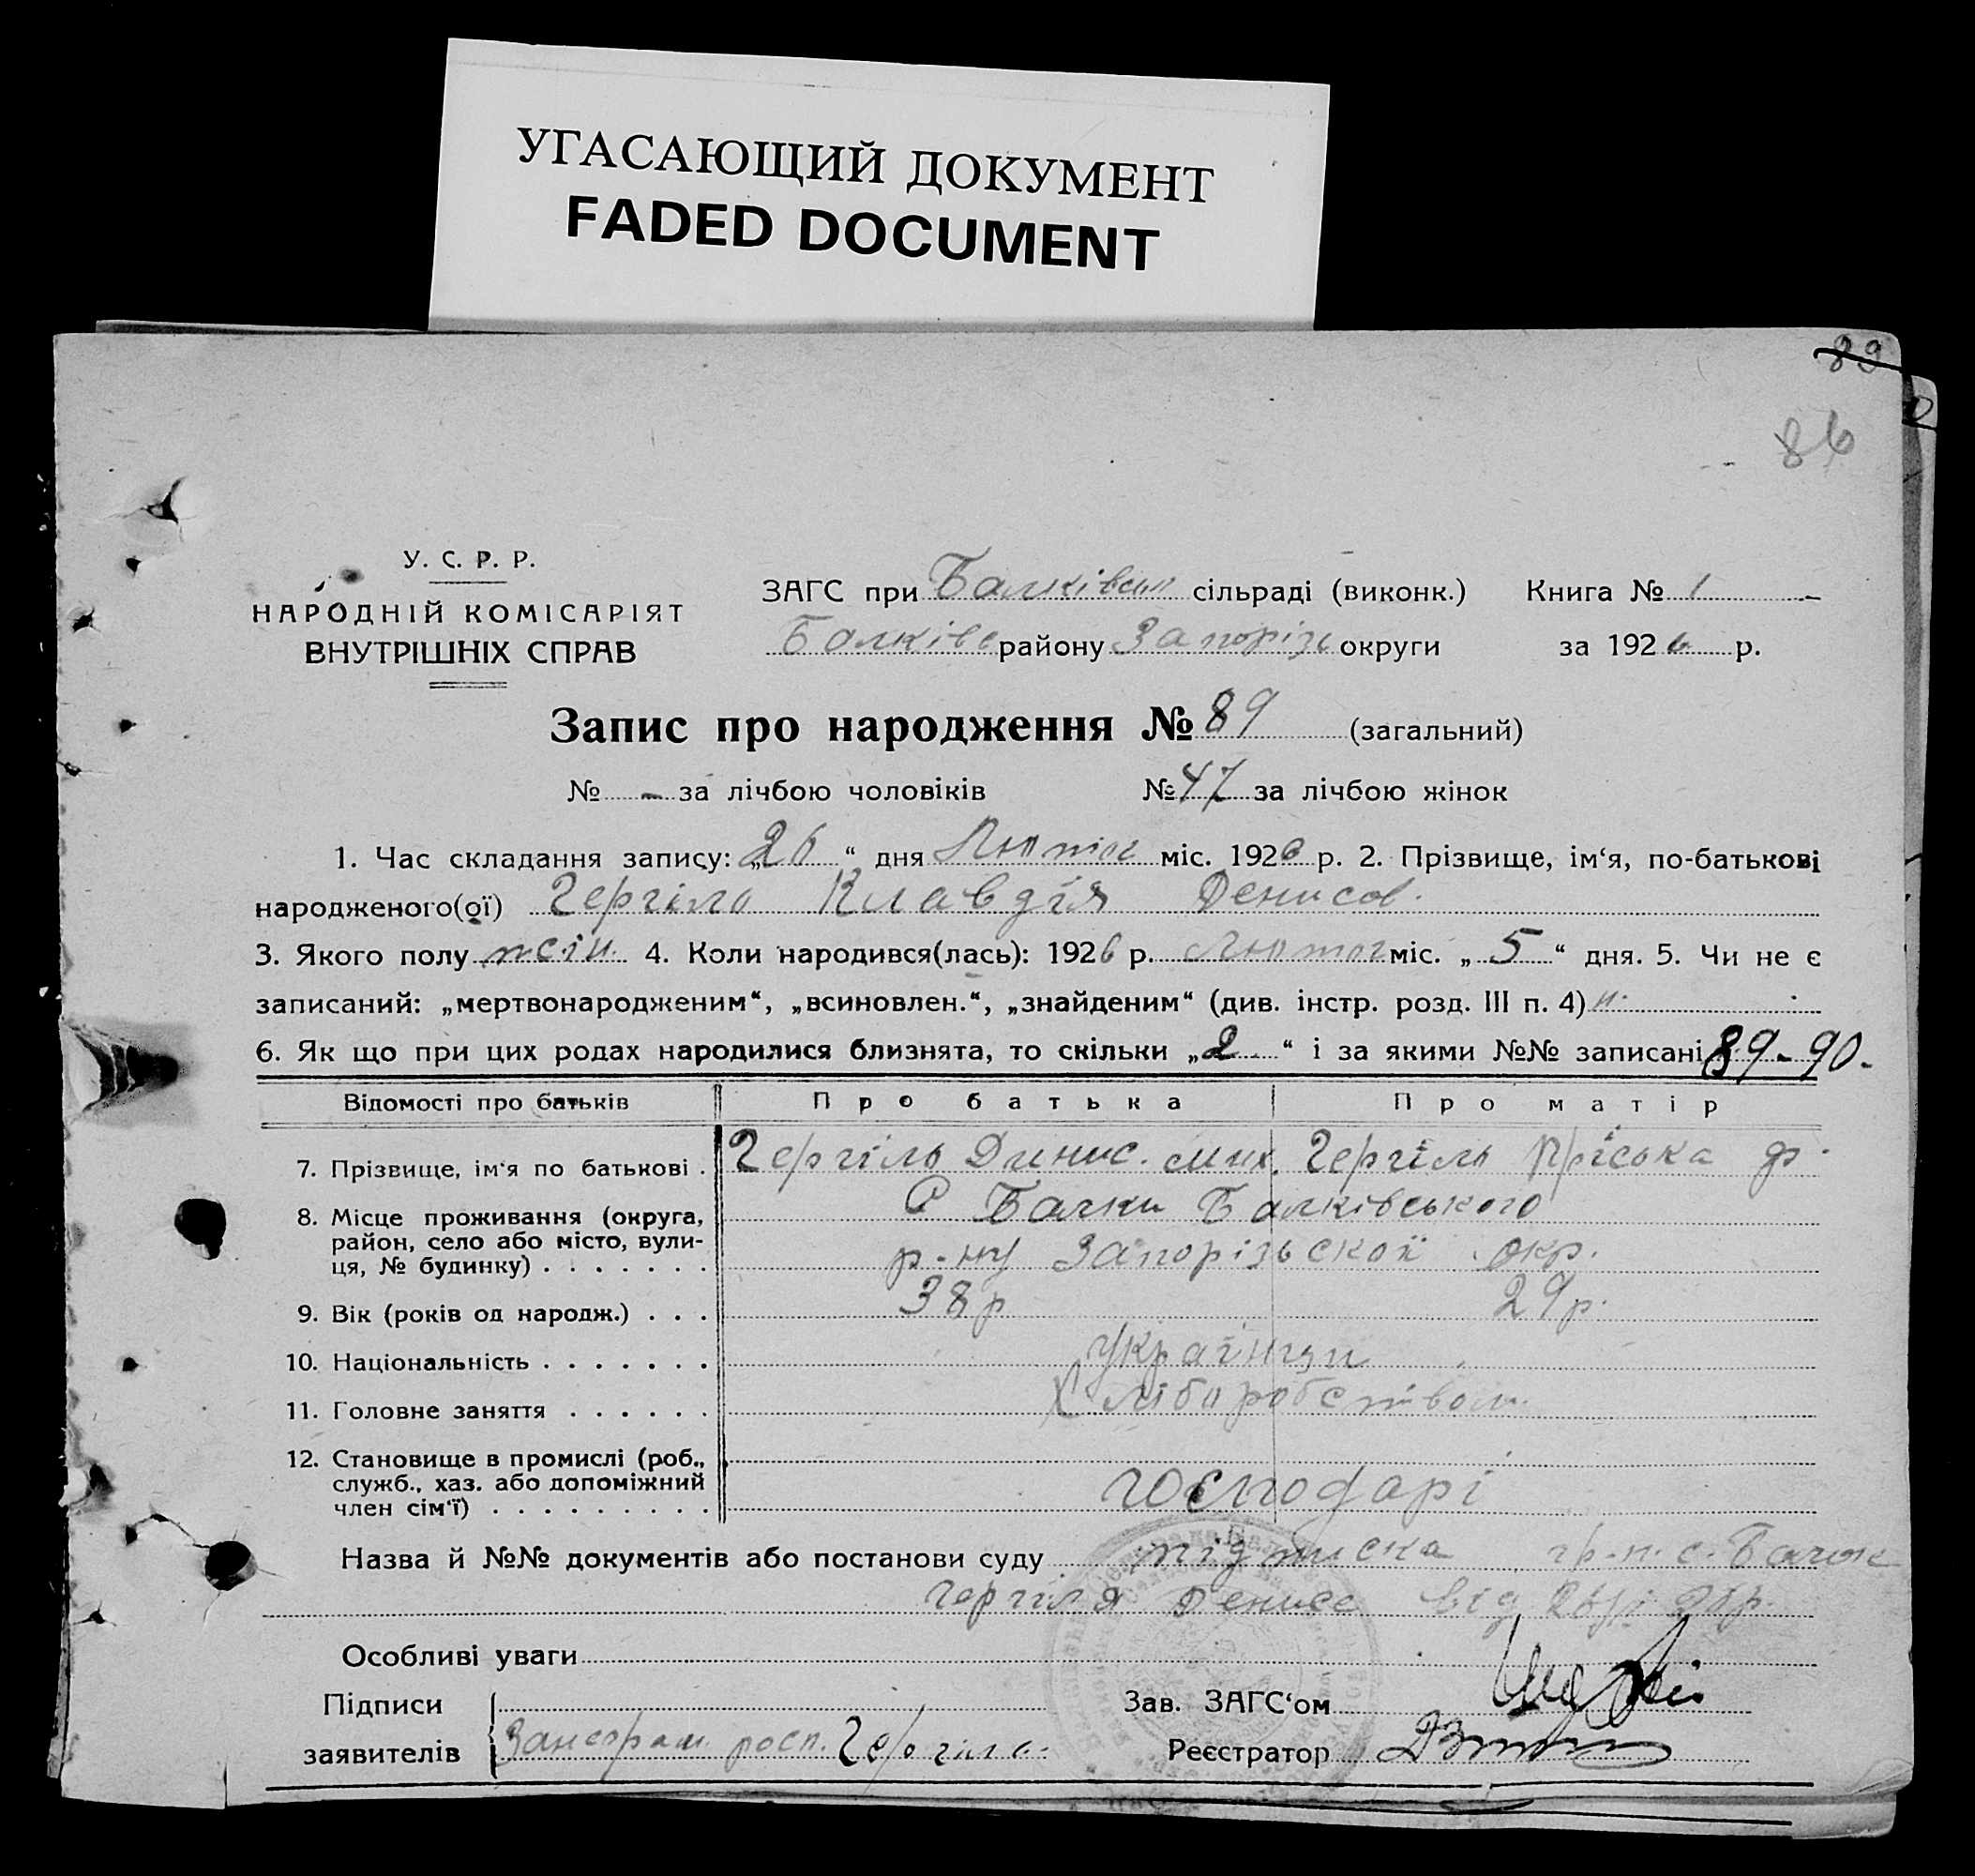 УГАСАЮЩИЙ ДОКУМЕНТ
FADED DOCUMENT
89
86
У. С. Р. Р.
НАРОДНІЙ КОМІСАРІЯТ
ВНУТРІШНІХ СПРАВ
ЗАГС при Балківськ сільраді (виконк.) Книга № 1
Балківс району Запорізь округи за 1926 р.
Запис про народження № 89 (загальний)
№ - за лічбою чоловіків № 47 за лічбою жінок
1. Час складання запису: „26“ дня Лютог міс. 1926 р. 2. Прізвище, ім‘я, по-батькові
народженого(ої) Чергіль Клавдія Денисов.
3. Якого полу жін. 4. Коли народився(лась): 1926 р. Лютог міс. „5“ дня. 5. Чи не є
записаний: „мертвонародженим“, „всиновлен.“, „знайденим“ (див. інстр. розд. III п. 4) н.
6. Як що при цих родах народилися близнята, то скільки „2“ і за якими №№ записані 89-90.
Відомості про батьків Про батька Про матір
7. Прізвище, ім‘я по батькові . Чергіль Динис. мих. Чергіль Пріська ф.
8. Місце проживання (округа, С Балки Балківського
район, село або місто, вули-
ця, № будинку) . . . . . . . р-ну Запорізьскої окр.
9. Вік (років од народж.) . . . 38 р 29 р.
10. Національність . . . . . . . українци
11. Головне заняття . . . . . . Хліборобством
12. Становище в промислі (роб.,
служб., хаз. або допоміжний
член сім‘ї) . . . . . . . . . господарі
Назва й №№ документів або постанови суду підписка гр-н. с. Балок
Чергіля Дениса від
Особливі уваги
Підписи Зав. ЗАГС‘ом
заявителів росп. Чергіль Реєстратор